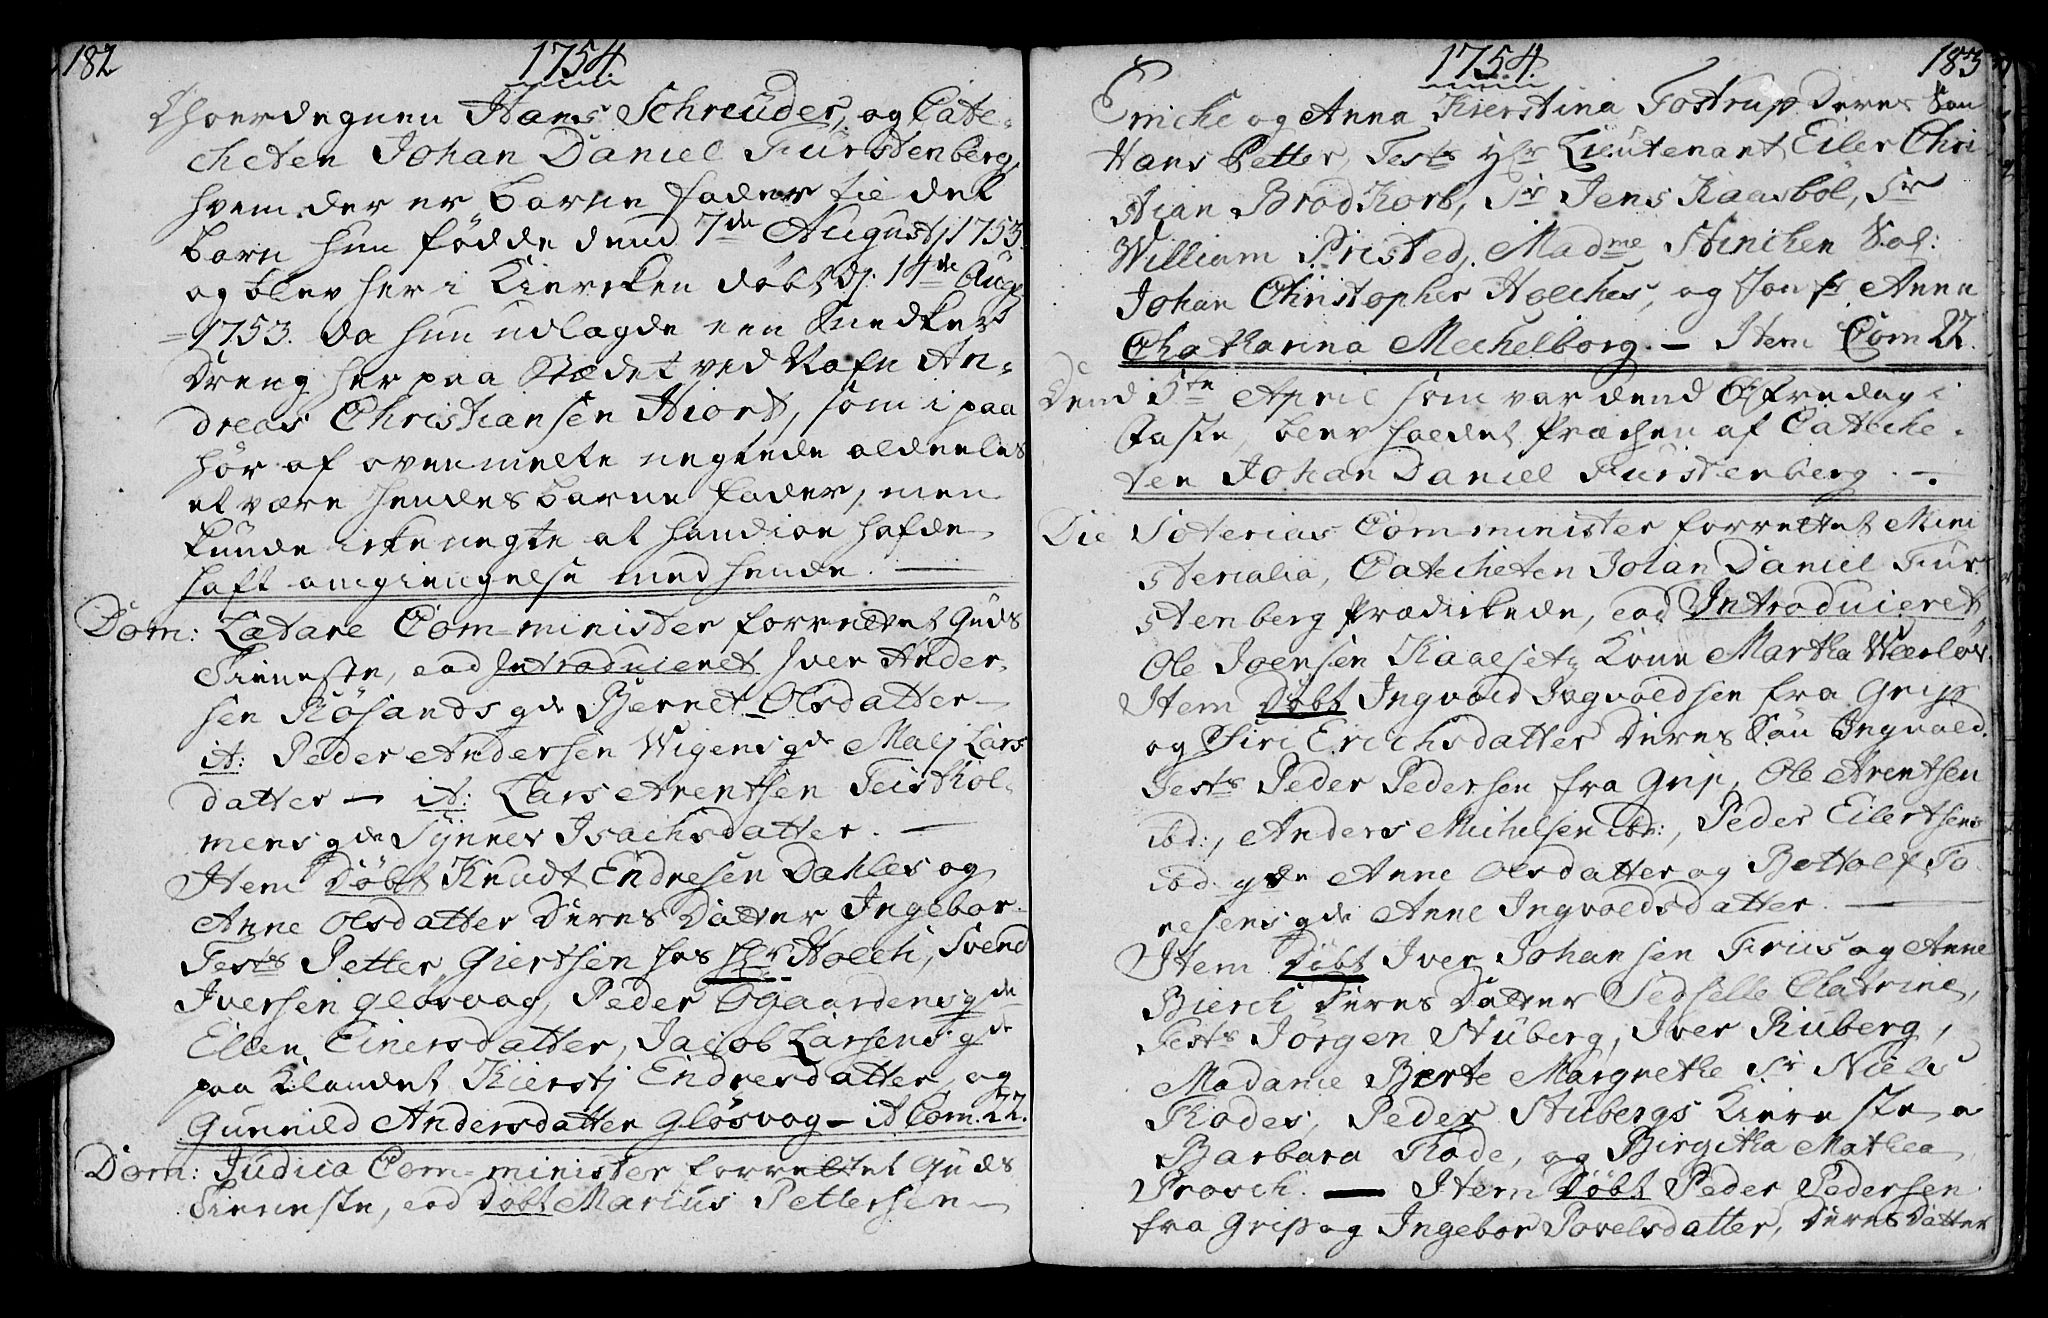 182
1754
Choerdegnen Hans Schreüder, og Cate-
cheten Johan Daniel Fürstenberg,
hvem der er barne fader til det
barn hun födde dend 7de Augustj 1753.
og blev her i Kiercken döbt dj. 14de Aug
1753. da hun udlagde een Snedker
Dreng her paa Stædet ved Nafn An-
dreas Christiansen Hiort, som i paa
hör af ovenmelte negtede aldeeles
at være hendes barne fader, men
kunde icke negte at hand ioe hafde
haft omgiengelse med hende. —
Dom: Lætare Com-minister forrettet Guds
Tieneste, eod Introducieret Iver Ander-
sen Rösands qde Bernet Olsdatter —
it: Peder Andersen Wigens qde Malj Lars
datter — it: Lars Arentsen Feisthol-
mens qde Synnev Isachsdatter. —
Item Döbt Knudt Endresen Dahles og
Anne Olsdatter Deres Datter Ingebor
Tests Petter Giertsen hos Hr Holch, Svend
Iversen Glosvog, Peder Ogaardens qde
Ellen Einersdatter, Jacob Larsens qde
paa Klandet Kierstj Endresdatter, og
Gunnild Andersdatter Glösvog — it Com. 22.
Dom: Judica Com-minister forrettet Guds
Tieneste, eod döbt Marcus Pettersen
1754.
183
Emicke og Anna Kierstina Tostrup Deres Son
Hans Petter, Tests Hr Lieutenant Eiler Chri-
stian Brodkorb, Sr Jens Kaasböl, Sr
William Pristed, Madme Stinchen Sal:
Johan Christopher Holches, og Jomfr Anna
Chatharina Mechelborg. — Item Com 22.
Dend 5te April som var dend 6 fredag i
Faste, blev holdet Præchen af Cateche-
ten Johan Daniel Fürstenberg. —
Die Soterias Com minister forrettet Mini
sterialia, Catecheten Johan Daniel Für-
stenberg Prædickede, eod Introducieret
Ole Joensen Kaaesets Kone Martha Wærlöv.
Item Döbt Ingvold Ingvoldsen fra Grip
og Siri Erichsdatter Deres Sön Ingvald.
Tests Peder Pedersen fra Grip, Ole Arentsen
ibd:, Anders Michelsen ibd:, Peder Eilertsens
ibd. qde Anne Olsdatter og Bottolf To
resens qde Anne Ingvoldsdatter. —
Item Döbt Iver Johansen Friis og Anne
Bierch Deres Datter Sedselle Chatrine,
Tests Jörgen Stüberg, Iver Rüberg,
Madame Berte Margrethe Sr Niels
Rodes, Peder Stübergs Kiereste
Barbara Rode, og Birgitha Mathea
Prosch. — Item Döbt Peder Pedersen
fra Grip og Ingebor Povelsdatter, Deres Datter